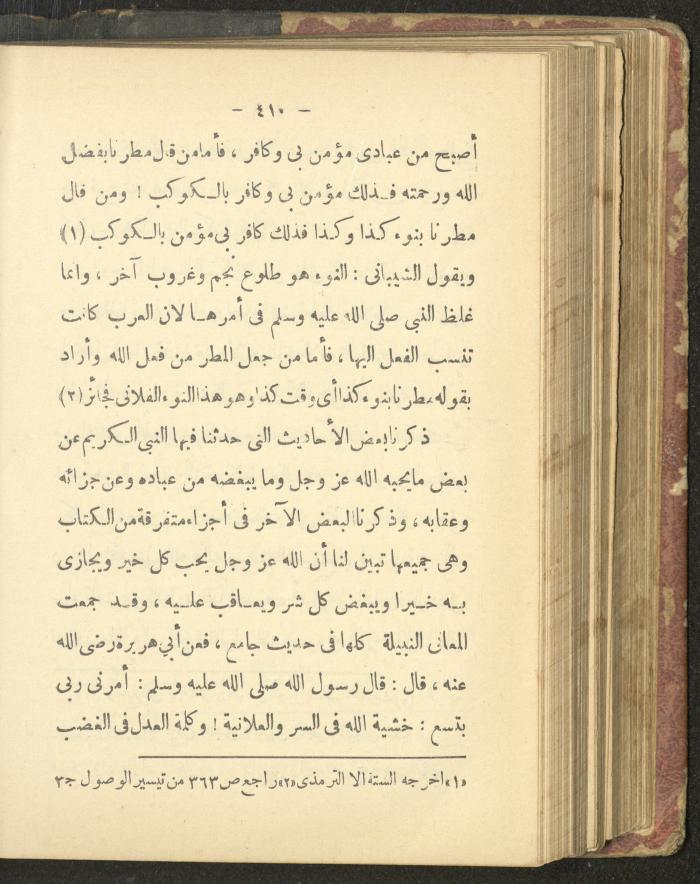 — ٤١٠ —
أصبح من عبادى مؤمن بى وكافر ، فأمامن قال مطرنا بفضل
الله ورحمته فذلك مؤمن بى وكافر بالكوكب ! ومن قال
مطرنا بنوء كذا وكذا فذلك كافر بى مؤمن بالكوكب (١)
ويقول الشيبانى : النوء هو طلوع نجم وغروب آخر ، وانما
غلظ النبى صلى الله عليه وسلم فى أمرها لان العرب كانت
تنسب الفعل اليها ، فأما من جعل المطر من فعل الله وأراد
بقوله مطرنا بنوء كذا أى وقت كذا وهو هذا النوء الفلانى فجائز (٢)
ذكرنا بعض الأحاديث التى حدثنا فيها النبى الكريم عن
بعض مايحبه الله عز وجل وما يبغضه من عباده وعن جزائه
وعقابه ، وذكرنا البعض الآخر فى أجزاء متفرقة من الكتاب
وهى جميعها تبين لنا أن الله عز وجل يحب كل خير ويجازى
به خيرا ويبغض كل شر ويعاقب عليه ، وقد جمعت
المعانى النبيلة كلها فى حديث جامع ، فعن أبي هريرة رضى الله
عنه ، قال : قال رسول الله صلى الله عليه وسلم : أمرنى ربى
بتسع : خشية الله فى السر والعلانية ! وكلمة العدل فى الغضب
«١» اخرجه الستة الا الترمذى «٢» راجع ص ٣٦٣ من تيسير الوصول ج ٣